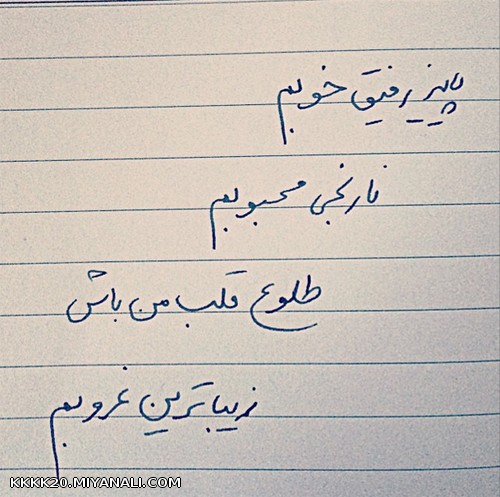 پاییز رفیق خوبم
نارنجی محبوبم
طلوع قلب من باش
زیباترین غروبم
KKKK20.MIYANALI.COM